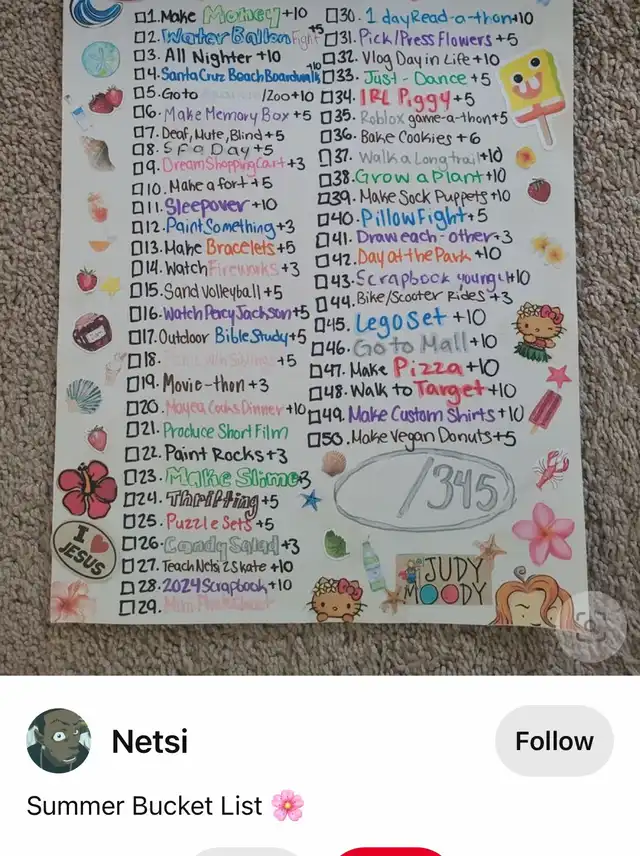 1. Make Money +10
2. Water Ballon Fight +5
3. All Nighter +10
4. Santa Cruz Beach Boardwalk +10
5. Go to /Zoo +10
6. Make Memory Box +5
7. Deaf, Mute, Blind +5
8. Spa Day +5
9. Dream Shopping Cart +3
10. Make a fort +5
11. Sleepover +10
12. Paint Something +3
13. Make Bracelets +5
14. Watch Fireworks +3
15. Sand Volleyball +5
16. Watch Percy Jackson +5
17. Outdoor Bible Study +5
18. +5
19. Movie-thon +3
20. Mayea Cooks Dinner +10
21. Produce Short Film
22. Paint Rocks +3
23. Make Slime +3
24. Thrifting +5
25. Puzzle Sets +5
26. Candy Salad +3
27. Teach Netsi 2 Skate +10
28. 2024 Scrapbook +10
29.
30. 1 day Read-a-thon +10
31. Pick/Press Flowers +5
32. Vlog Day in Life +10
33. Just-Dance +5
34. IRL Piggy +5
35. Roblox game-a-thon +5
36. Bake Cookies +6
37. Walk a Long trail +10
38. Grow a Plant +10
39. Make Sock Puppets +10
40. Pillow Fight +5
41. Draw each-other +3
42. Day at the Park +10
43. Scrapbook +10
44. Bike/Scooter Rides +3
45. Lego Set +10
46. Go to Mall +10
47. Make Pizza +10
48. Walk to Target +10
49. Make Custom Shirts +10
50. Make Vegan Donuts +5
/345
I ❤ JESUS
JUDY
MOODY
Netsi
Follow
Summer Bucket List 🌸